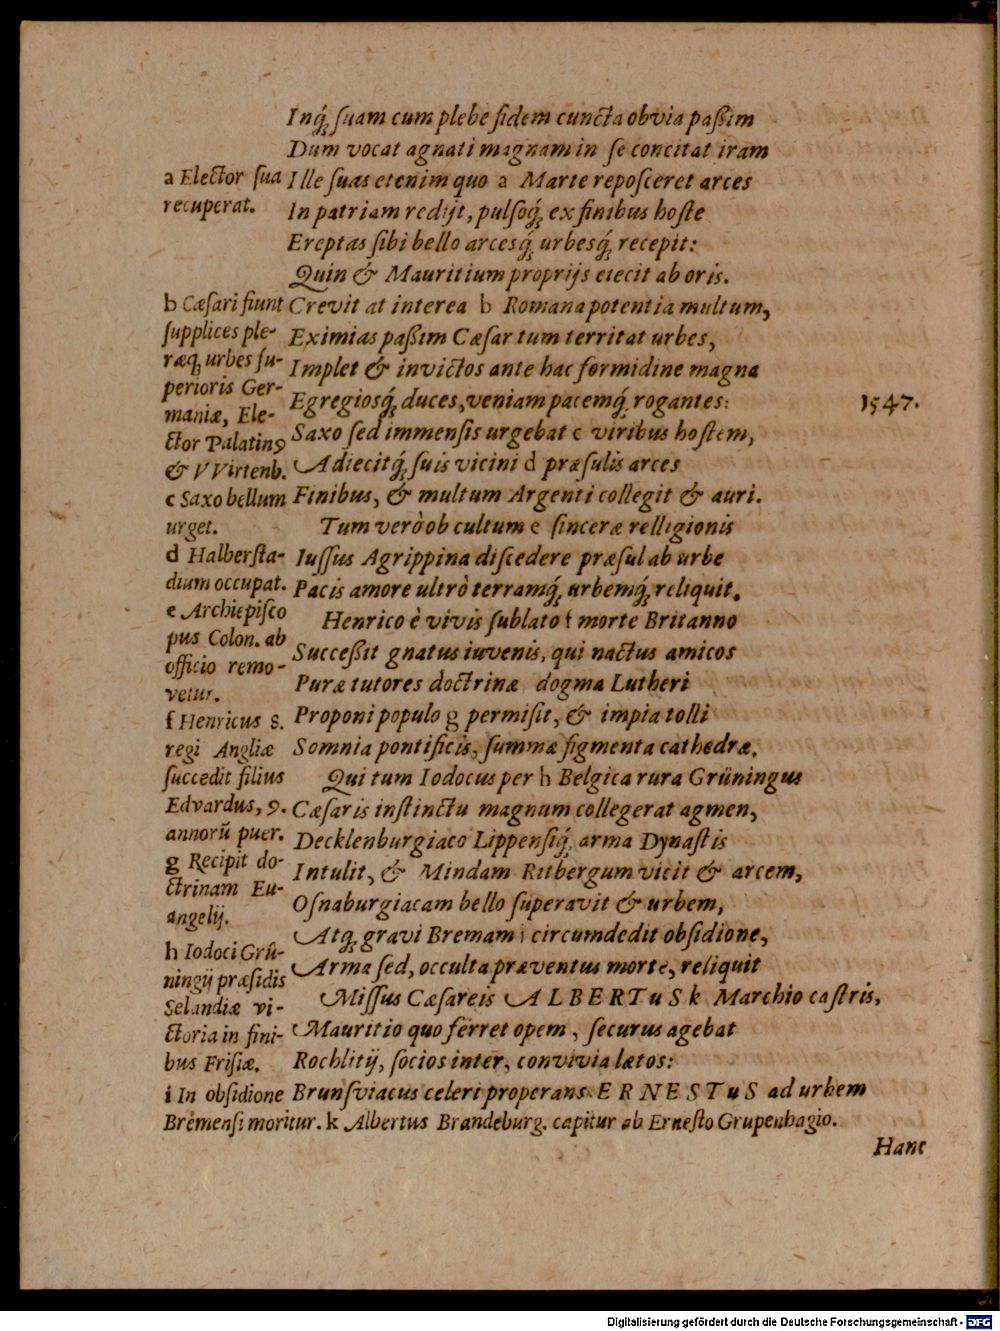 Inq́; ſuam cum plebe fidem cuncta obvia paßim
Dum vocat agnati magnam in ſe concitat iram
a Elector ſua
recuperat.
Ille ſuas etenim quo a Marte repoſceret arces
In patriam redijt, pulſoq́; ex finibus hoſte
Ereptas ſibi bello arcesq́; urbesq́; recepit:
Quin & Mauritium proprijs eiecit ab oris.
b Cæſari fiunt
ſupplices ple-
ræq; urbes ſu-
perioris Ger-
maniæ, Ele-
ctor Palatinꝰ
& VVirtenb.
Crevit at interea b Romana potentia multum,
Eximias paßim Cæſar tum territat urbes,
Implet & invictos ante hac formidine magna
Egregiosq́; duces, veniam pacemq́; rogantes:
1547.
Saxo ſed immenſis urgebat c viribus hoſtem,
Adiecitq́; ſuis vicini d præſulis arces
c Saxo bellum
urget.
Finibus, & multum Argenti collegit & auri.
Tum verò ob cultum e ſinceræ relligionis
d Halberſta-
dium occupat.
Iuſſus Agrippina diſcedere præſul ab urbe
Pacis amore ultrò terramq́; urbemq́; reliquit.
e Archiepiſco
pus Colon. ab
officio remo-
vetur.
Henrico è vivis ſublato f morte Britanno
Succeßit gnatus iuvenis, qui nactus amicos
Puræ tutores doctrinæ dogma Lutheri
f Henricus 8.
regi Angliæ
ſuccedit filius
Edvardus, 9.
annorũ puer.
Proponi populo g permiſit, & impia tolli
Somnia pontificis, ſummæ figmenta cathedræ.
Qui tum Iodocus per h Belgica rura Grüningus
Cæſaris inſtinctu magnum collegerat agmen,
Decklenburgiaco Lippenſiq́; arma Dynaſtis
g Recipit do-
ctrinam Eu-
angelij.
Intulit, & Mindam Ritbergum vicit & arcem,
Oſnaburgiacam bello ſuperavit & urbem,
Atq; gravi Bremam i circumdedit obſidione,
h Iodoci Grü-
ningij præſidis
Selandiæ vi-
ctoria in fini-
bus Friſiæ.
Arma ſed, occulta præventus morte, reliquit
Miſſus Cæſareis ALBERTuS k Marchio caſtris,
Mauritio quo ferret opem, ſecurus agebat
Rochlitij, ſocios inter, convivia lætos:
i In obſidione
Bremenſi moritur. k Albertus Brandeburg. capitur ab Erneſto Grupenhagio.
Brunſviacus celeri properans ERNESTuS ad urbem
Hanc
Digitalisierung gefördert durch die Deutsche Forschungsgemeinschaft - DFG